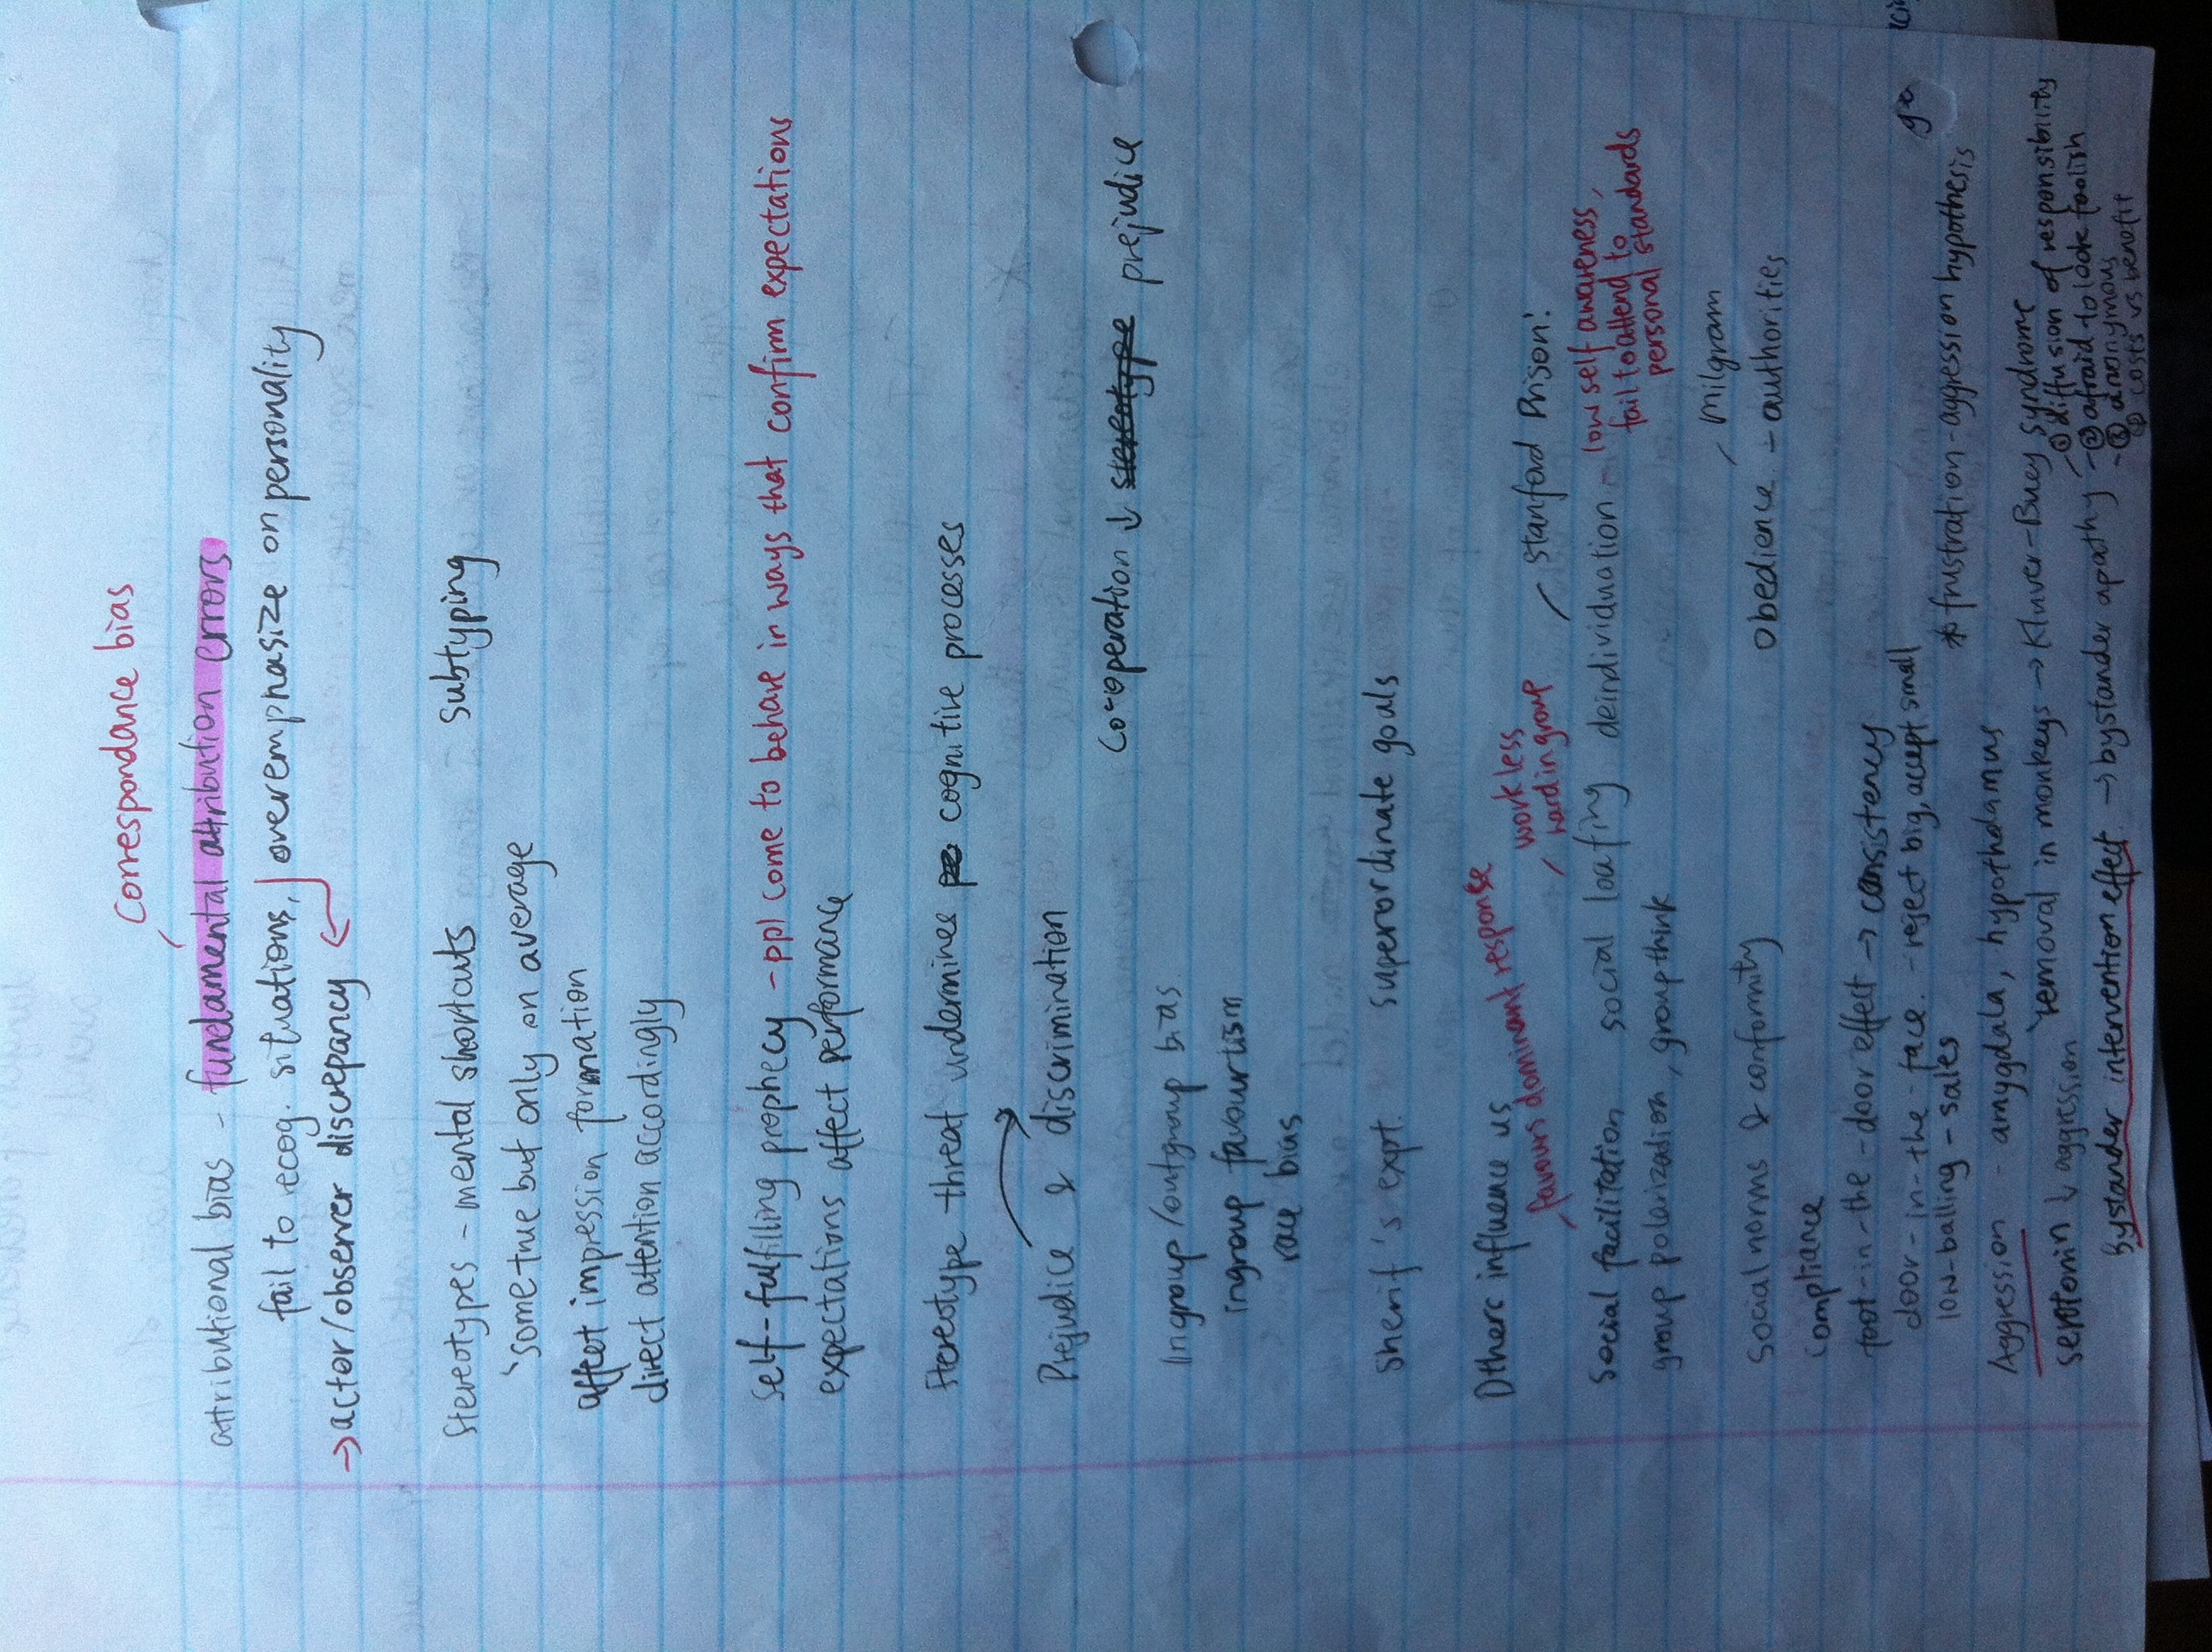 correspondance bias
attributional bias - fundamental attribution errors
fail to recog. situations, overemphasize on personality
→ actor/observer discrepancy
stereotypes - mental shortcuts subtyping
some true but only on average
affect impression formation
direct attention accordingly
self-fulfilling prophecy - ppl come to behave in ways that confirm expectations
expectations affect performance
stereotype threat undermines cognitive processes
Prejudice & discrimination
co-operation ↓ stereotype prejudice
ingroup/outgroup bias
ingroup favouritism
race bias
Sherif's expt. superordinate goals
Others influence us
favours dominant response
work less
hard in group
Stanford Prison!
social facilitation social loafing deindividuation - low self awareness,
fail to attend to
personal standards
group polarization, groupthink
milgram
social norms & conformity obedience - authorities
compliance
foot-in-the-door effect → consistency
door-in-the-face. - reject big, accept small
low-balling - sales
* frustration-aggression hypothesis
Aggression - amygdala, hypothalamus
removal in monkeys → Kluver-Bucy syndrome
serotonin ↓ aggression
bystander intervention effect → bystander apathy
① diffusion of responsibility
② afraid to look foolish
③ anonymous
④ costs vs benefit